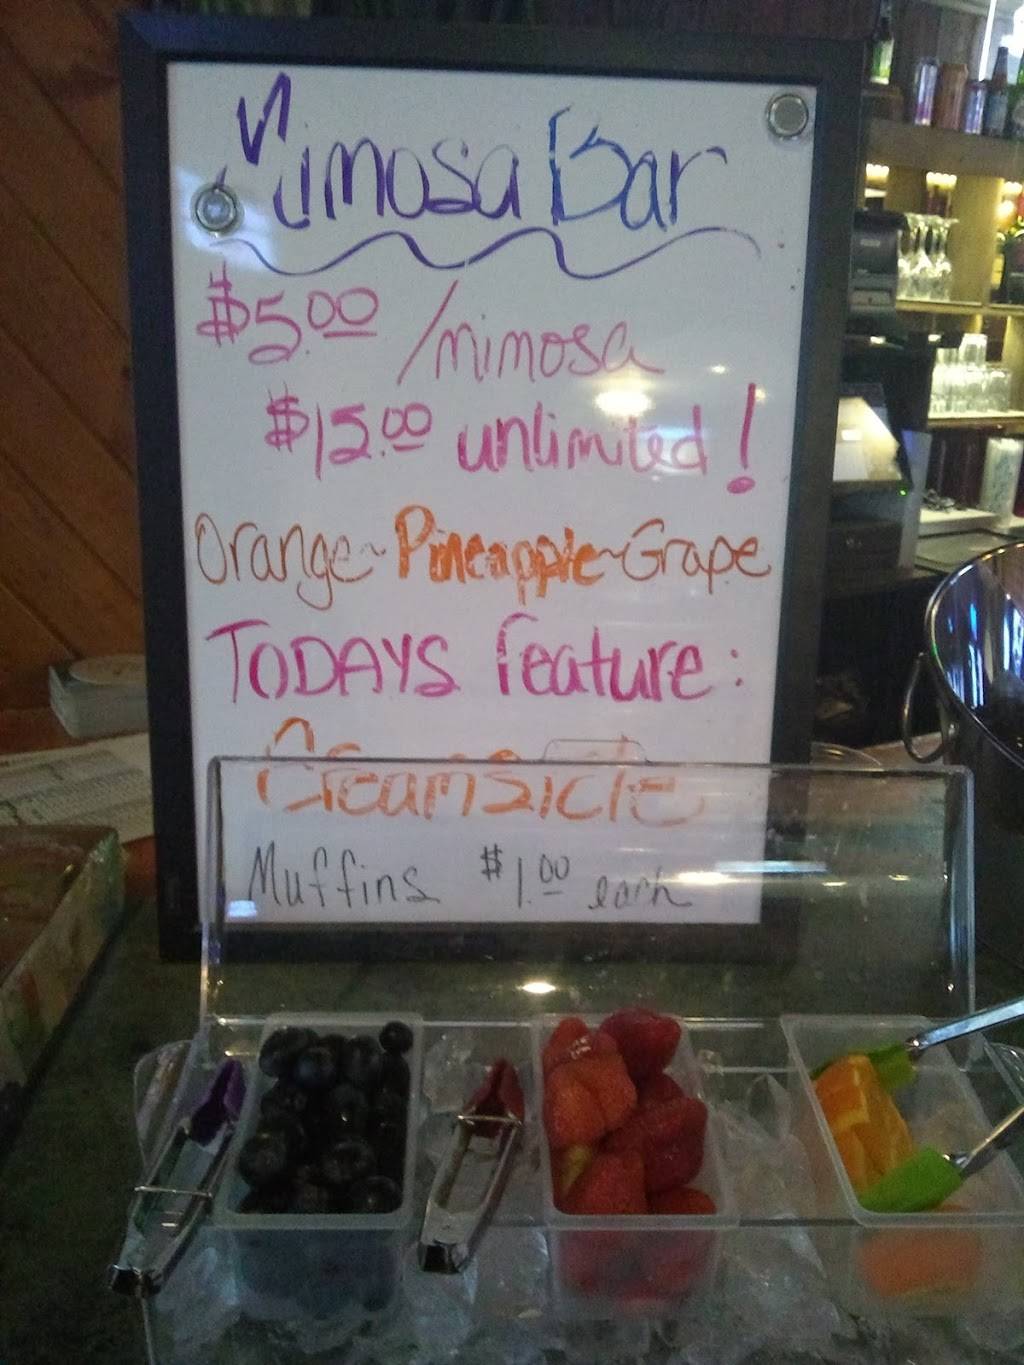 Mimosa Bar
$5.00 /mimosa
$15.00 unlimited!
Orange~Pineapple~Grape
TODAYS feature:
Creamsicle
Muffins $1.00 each